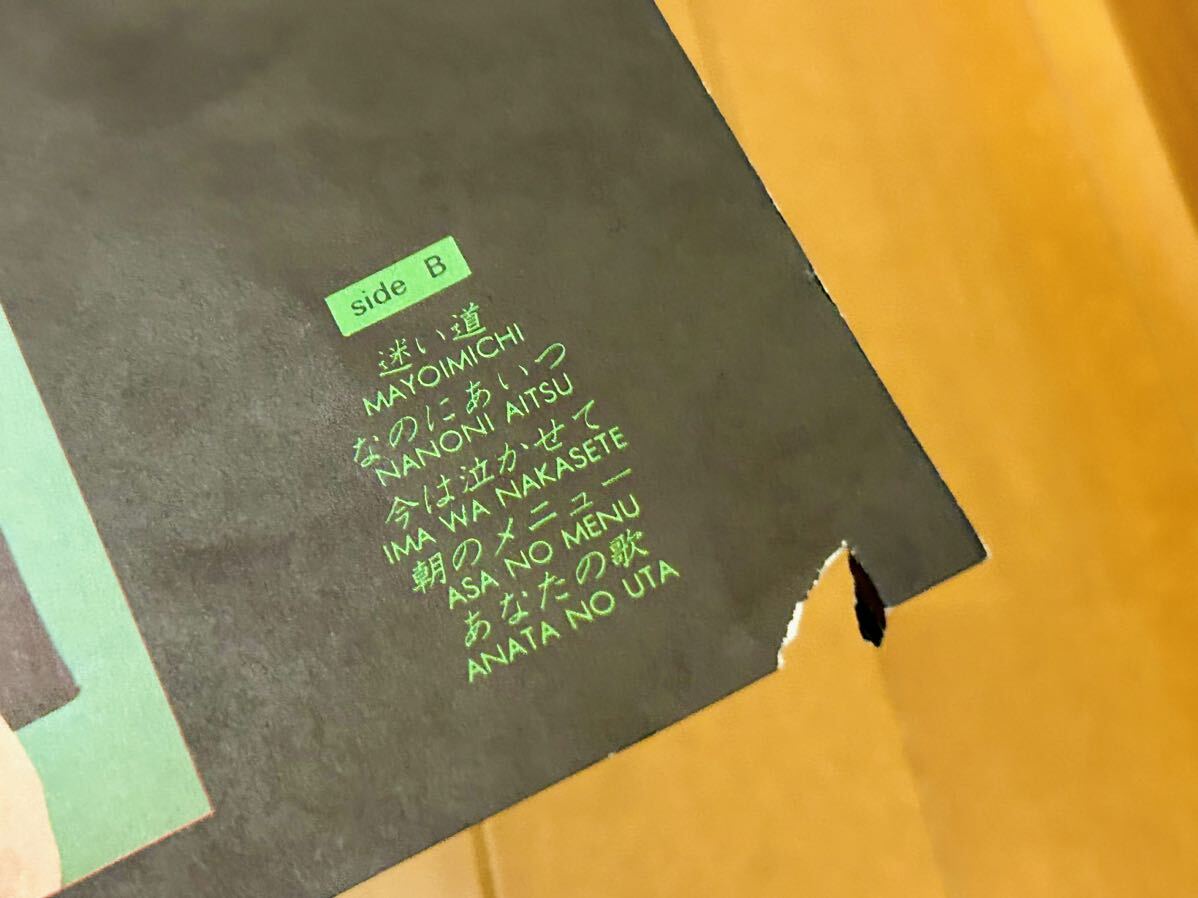 side B
迷い道
MAYOIMICHI
なのにあいつ
NANONI AITSU
今は泣かせて
IMA WA NAKASETE
朝のメニュー
ASA NO MENU
あなたの歌
ANATA NO UTA